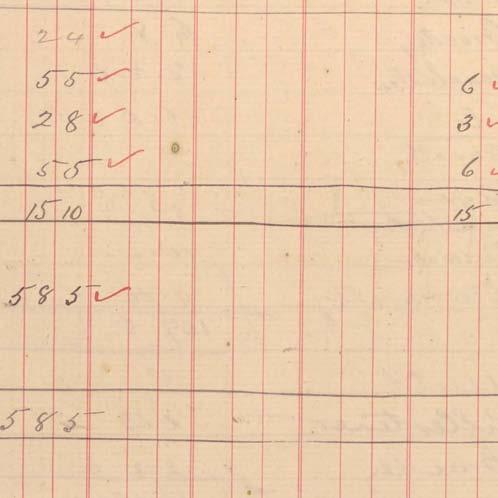 24 ✓
55 ✓ 6 ✓
28 ✓ 3 ✓
55 ✓ 6 ✓
15 10 15
585 ✓
585